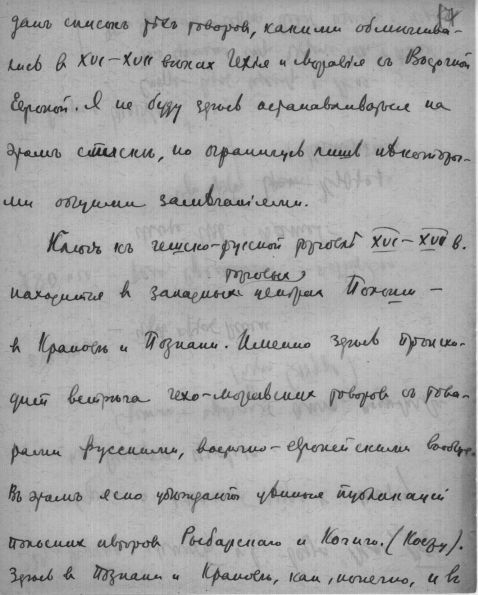 данъ списокъ тѣхъ товаров, какими обмѣнива-
лись в XVI–XVII вѣкахъ Чехія и Моравія съ Восточной
Европой. Я не буду здѣсь останавливаться на
этомъ спискѣ, но ограничусь лишь нѣкоторы-
ми общими замѣчаніями.
Ключъ къ чешско-русской торговлѣ XVI–XVII в.
торговых
находится в западных центрах Польши –
в Краковѣ и Познани. Именно здѣсь происхо-
дит встрѣча чехо-моравских товаров съ това-
рами русскими, восточно-европейскими вообще.
Въ этомъ ясно убѣждают цѣнныя публикации
польских авторов Рыбарскаго и Кочиго. (Koczy).
Здѣсь в Познани и Краковѣ, как, конечно, и в